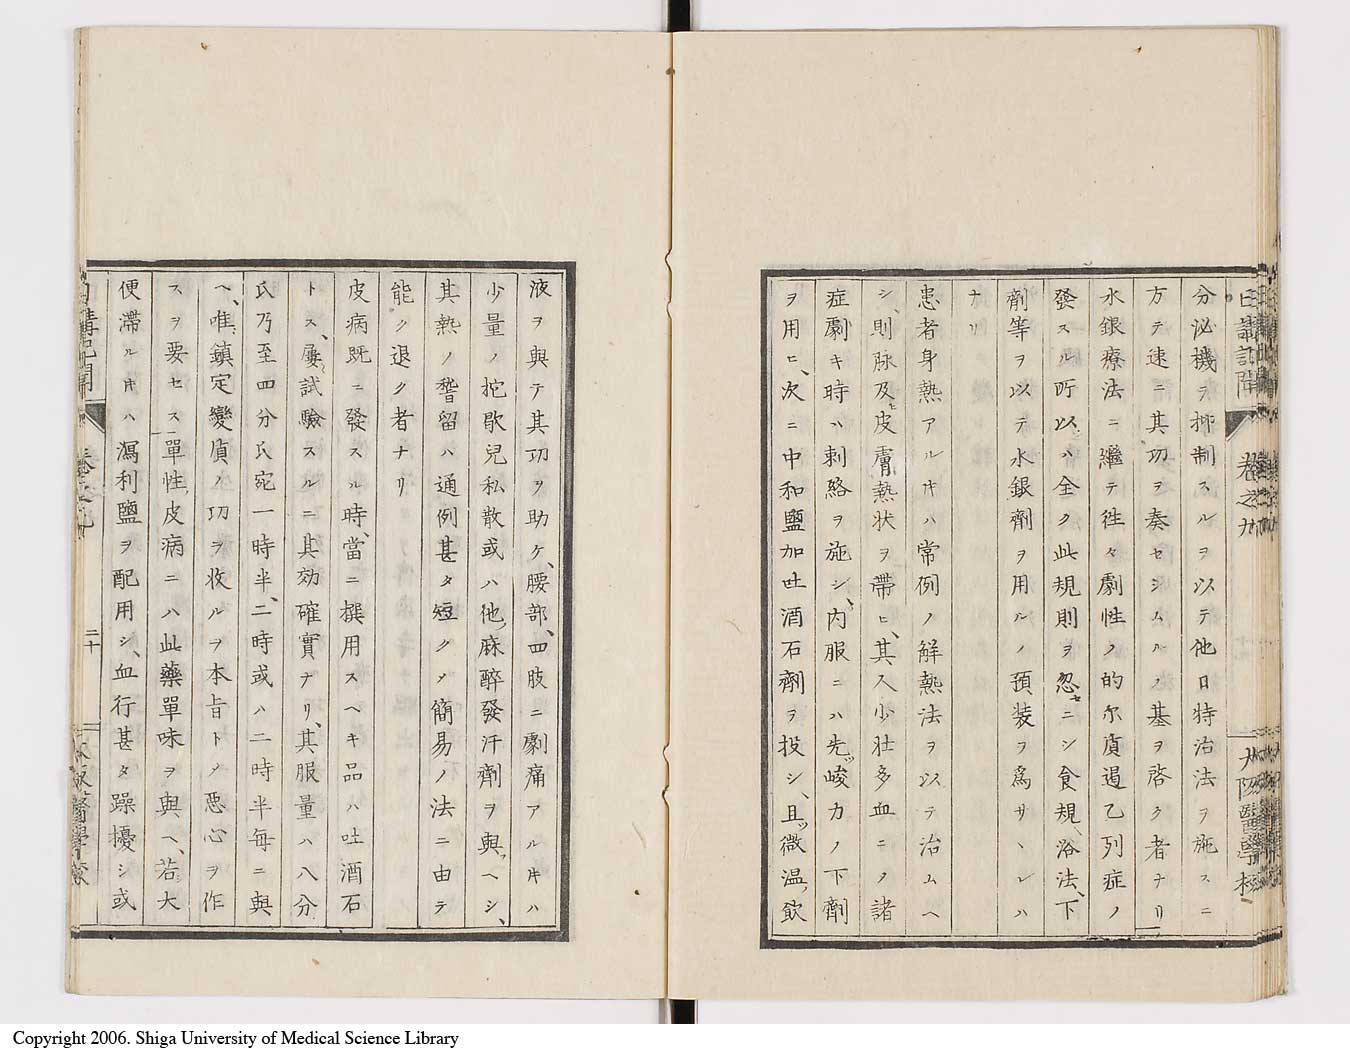 分泌機ヲ抑制スルヲ以テ他日特治法ヲ施スニ
方テ速ニ其功ヲ奏セシムルノ基ヲ啓ク者ナリ
水銀療法ニ繼テ徃々劇性ノ的尓質過乙列症ノ
發スル所以ハ全ク此規則ヲ忽セニシ食規、浴法、下
劑等ヲ以テ水銀劑ヲ用ルノ預装ヲ爲サヽレハ
ナリ
患者身熱アルキハ常例ノ解熱法ヲ以テ治ムヘ
シ、則脉及ヒ皮膚熱状ヲ帶ヒ、其人少壮多血ニノ諸
症劇キ時ハ刺絡ヲ施シ、内服ニハ先ツ峻力ノ下劑
ヲ用ヒ、次ニ中和鹽加吐酒石劑ヲ投シ、且ツ微温飲
日講記聞
卷之九
大阪醫學校
液ヲ與テ其功ヲ助ケ、腰部、四肢ニ劇痛アルキハ
少量ノ抱歇兒私散或ハ他、麻醉發汗劑ヲ與ヘシ、
其熱ノ稽留ハ通例甚タ短クノ簡易ノ法ニ由テ
能ク退ク者ナリ
皮病既ニ發スル時、當ニ撰用スヘキ品ハ吐酒石
トス、屡試驗スルニ其効確實ナリ、其服量ハ八分
氏乃至四分氏宛一時半、二時或ハ二時半毎ニ與
ヘ、唯鎮定變質ノ功ヲ收ルヲ本旨トノ悪心ヲ作
スヲ要セス單性皮病ニハ此藥單味ヲ與ヘ、若大
便滯ルキハ瀉利鹽ヲ配用シ、血行甚タ躁擾シ或
日講記聞
卷之九
二十
大阪醫學校
Copyright 2006. Shiga University of Medical Science Library